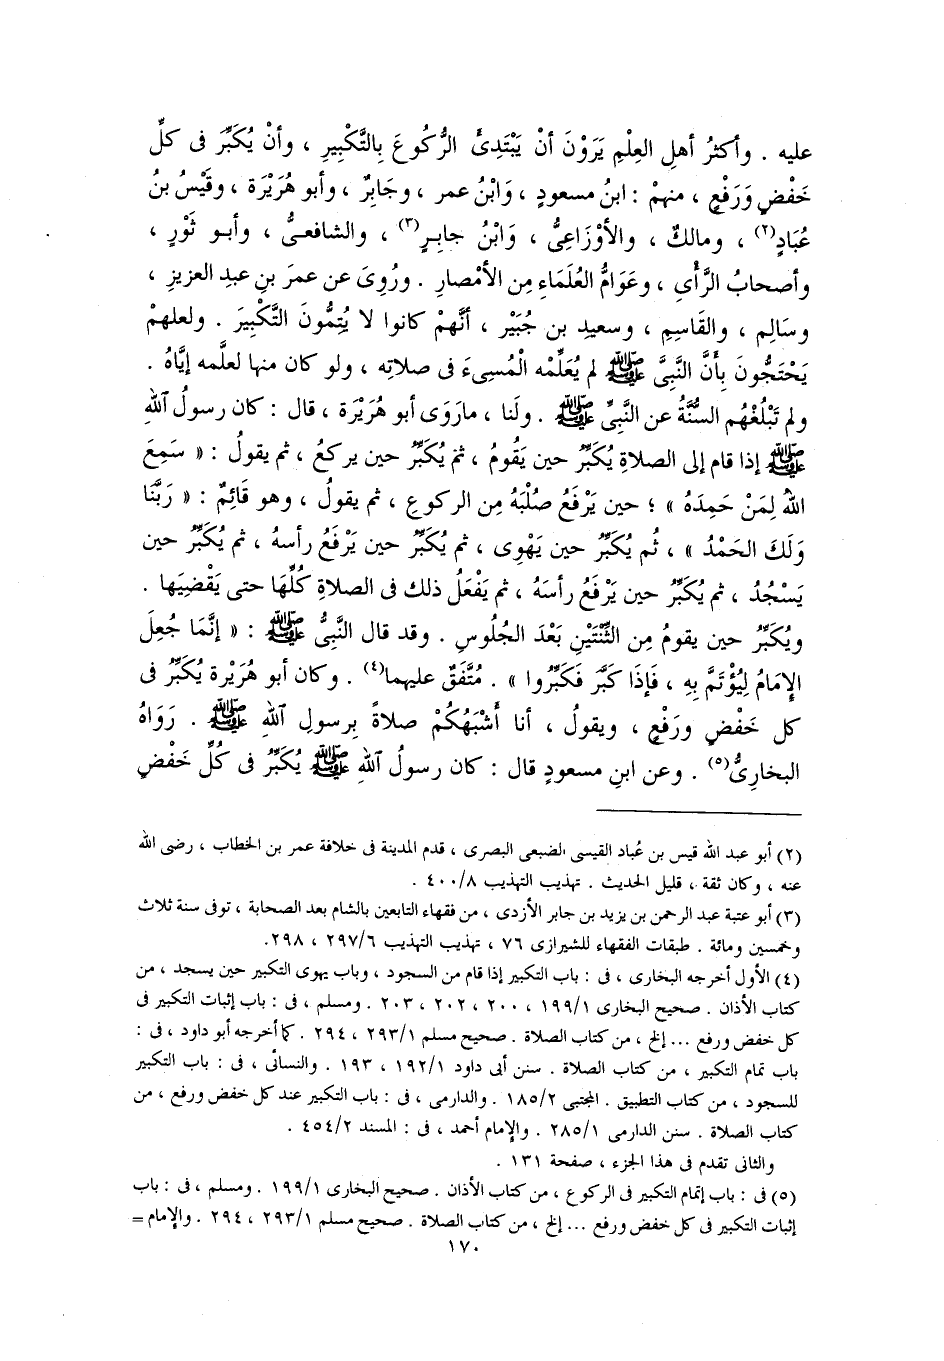 عليه . وأكثرُ أهلِ العِلْمِ يَرَوْنَ أنْ يَبْتَدِئَ الرُّكُوعَ بِالتَّكْبِيرِ ، وأنْ يُكَبِّرَ فى كلِّ
خَفْضٍ وَرَفْعٍ ، منهمْ : ابنُ مسعودٍ ، وَابْنُ عمر ، وجَابِرٌ ، وأبو هُرَيْرَة ، وقَيْسُ بنُ
عُبَادٍ(٢) ، ومالكٌ ، والأوْزَاعِىُّ ، وَابْنُ جابِرٍ(٣) ، والشافعىُّ ، وأبو ثَوْرٍ ،
وأصحابُ الرَّأْىِ ، وعَوَامُّ العُلَمَاءِ مِن الأمْصارِ . ورُوِىَ عن عمرَ بنِ عبدِ العزيزِ ،
وسَالِم ، والقَاسِمِ ، وسعيدِ بن جُبَيْر ، أنَّهمْ كانوا لا يُتِمُّونَ التَّكْبِيرَ . ولعلهمْ
يَحْتَجُّونَ بِأنَّ النَّبِىَّ ﷺ لم يُعَلِّمْه الْمُسِىءَ فى صلاتِه ، ولو كان منها لعلَّمه إيَّاهُ .
ولم تَبْلُغْهُم السُّنَّةُ عن النَّبِىِّ ﷺ . ولَنا ، مارَوَى أبو هُرَيْرَة ، قال : كان رسولُ اللهِ
ﷺ إذا قام إلى الصلاةِ يُكَبِّرُ حين يَقُومُ ، ثمْ يُكَبِّرُ حين يركعُ ، ثم يقولُ : « سَمِعَ
اللهُ لِمَنْ حَمِدَهُ » ؛ حين يَرْفَعُ صُلْبَهُ مِن الركوعِ ، ثم يقولُ ، وهو قَائِمٌ : « رَبَّنَا
وَلَكَ الحَمْدُ » ، ثُم يُكَبِّرُ حين يَهْوِى ، ثم يُكَبِّرُ حين يَرْفَعُ رأسهُ ، ثم يُكَبِّرُ حين
يَسْجُدُ ، ثم يُكَبِّرُ حين يَرْفَعُ رأسَهُ ، ثم يَفْعَلُ ذلك فى الصلاةِ كُلِّهَا حتى يَقْضِيَها .
ويُكَبِّرُ حين يقومُ مِن الثِّنْتَيْنِ بَعْدَ الجُلُوسِ . وقد قال النَّبِىُّ ﷺ : « إنَّمَا جُعِلَ
الإمَامُ لِيُؤْتَمَّ بِهِ ، فَإذَا كَبَّرَ فَكَبِّرُوا » . مُتَّفَقٌ عليهما(٤) . وكان أبو هُرَيْرة يُكَبِّرُ فى
كل خَفْضٍ ورَفْعٍ ، ويقولُ ، أنا أَشْبَهُكُمْ صلاةً بِرسولِ اللهِ ﷺ . رَوَاهُ
البخارِىُّ(٥) . وعن ابنِ مسعودٍ قال : كان رسولُ اللهِ ﷺ يُكَبِّرُ فى كُلِّ خَفْضٍ
(٢) أبو عبد الله قيس بن عُباد القيسى الضبعى البصرى ، قدم المدينة فى خلافة عمر بن الخطاب ، رضى الله
عنه ، وكان ثقة ، قليل الحديث . تهذيب التهذيب ٤٠٠/٨ .
(٣) أبو عتبة عبد الرحمن بن يزيد بن جابر الأزدى ، من فقهاء التابعين بالشام بعد الصحابة ، توفى سنة ثلاث
وخمسين ومائة . طبقات الفقهاء للشيرازى ٧٦ ، تهذيب التهذيب ٢٩٧/٦ ، ٢٩٨.
(٤) الأول أخرجه البخارى ، فى : باب التكبير إذا قام من السجود ، وباب يهوى التكبير حين يسجد ، من
كتاب الأذان . صحيح البخارى ١٩٩/١ ، ٢٠٠ ، ٢٠٢ ، ٢٠٣ . ومسلم ، فى : باب إثبات التكبير فى
كل خفض ورفع ... إلخ ، من كتاب الصلاة . صحيح مسلم ٢٩٣/١ ، ٢٩٤ . كما أخرجه أبو داود ، فى :
باب تمام التكبير ، من كتاب الصلاة . سنن أبى داود ١٩٢/١ ، ١٩٣ . والنسائى ، فى : باب التكبير
للسجود ، من كتاب التطبيق . المجتبى ١٨٥/٢ . والدارمى ، فى : باب التكبير عند كل خفض ورفع ، من
كتاب الصلاة . سنن الدارمى ٢٨٥/١ . والإمام أحمد ، فى : المسند ٤٥٤/٢ .
والثانى تقدم فى هذا الجزء ، صفحة ١٣١ .
(٥) فى : باب إتمام التكبير فى الركوع ، من كتاب الأذان . صحيح البخارى ١٩٩/١ . ومسلم ، فى : باب
إثبات التكبير فى كل خفض ورفع ... إلخ ، من كتاب الصلاة . صحيح مسلم ٢٩٣/١ ، ٢٩٤ . والإمام =
١٧٠